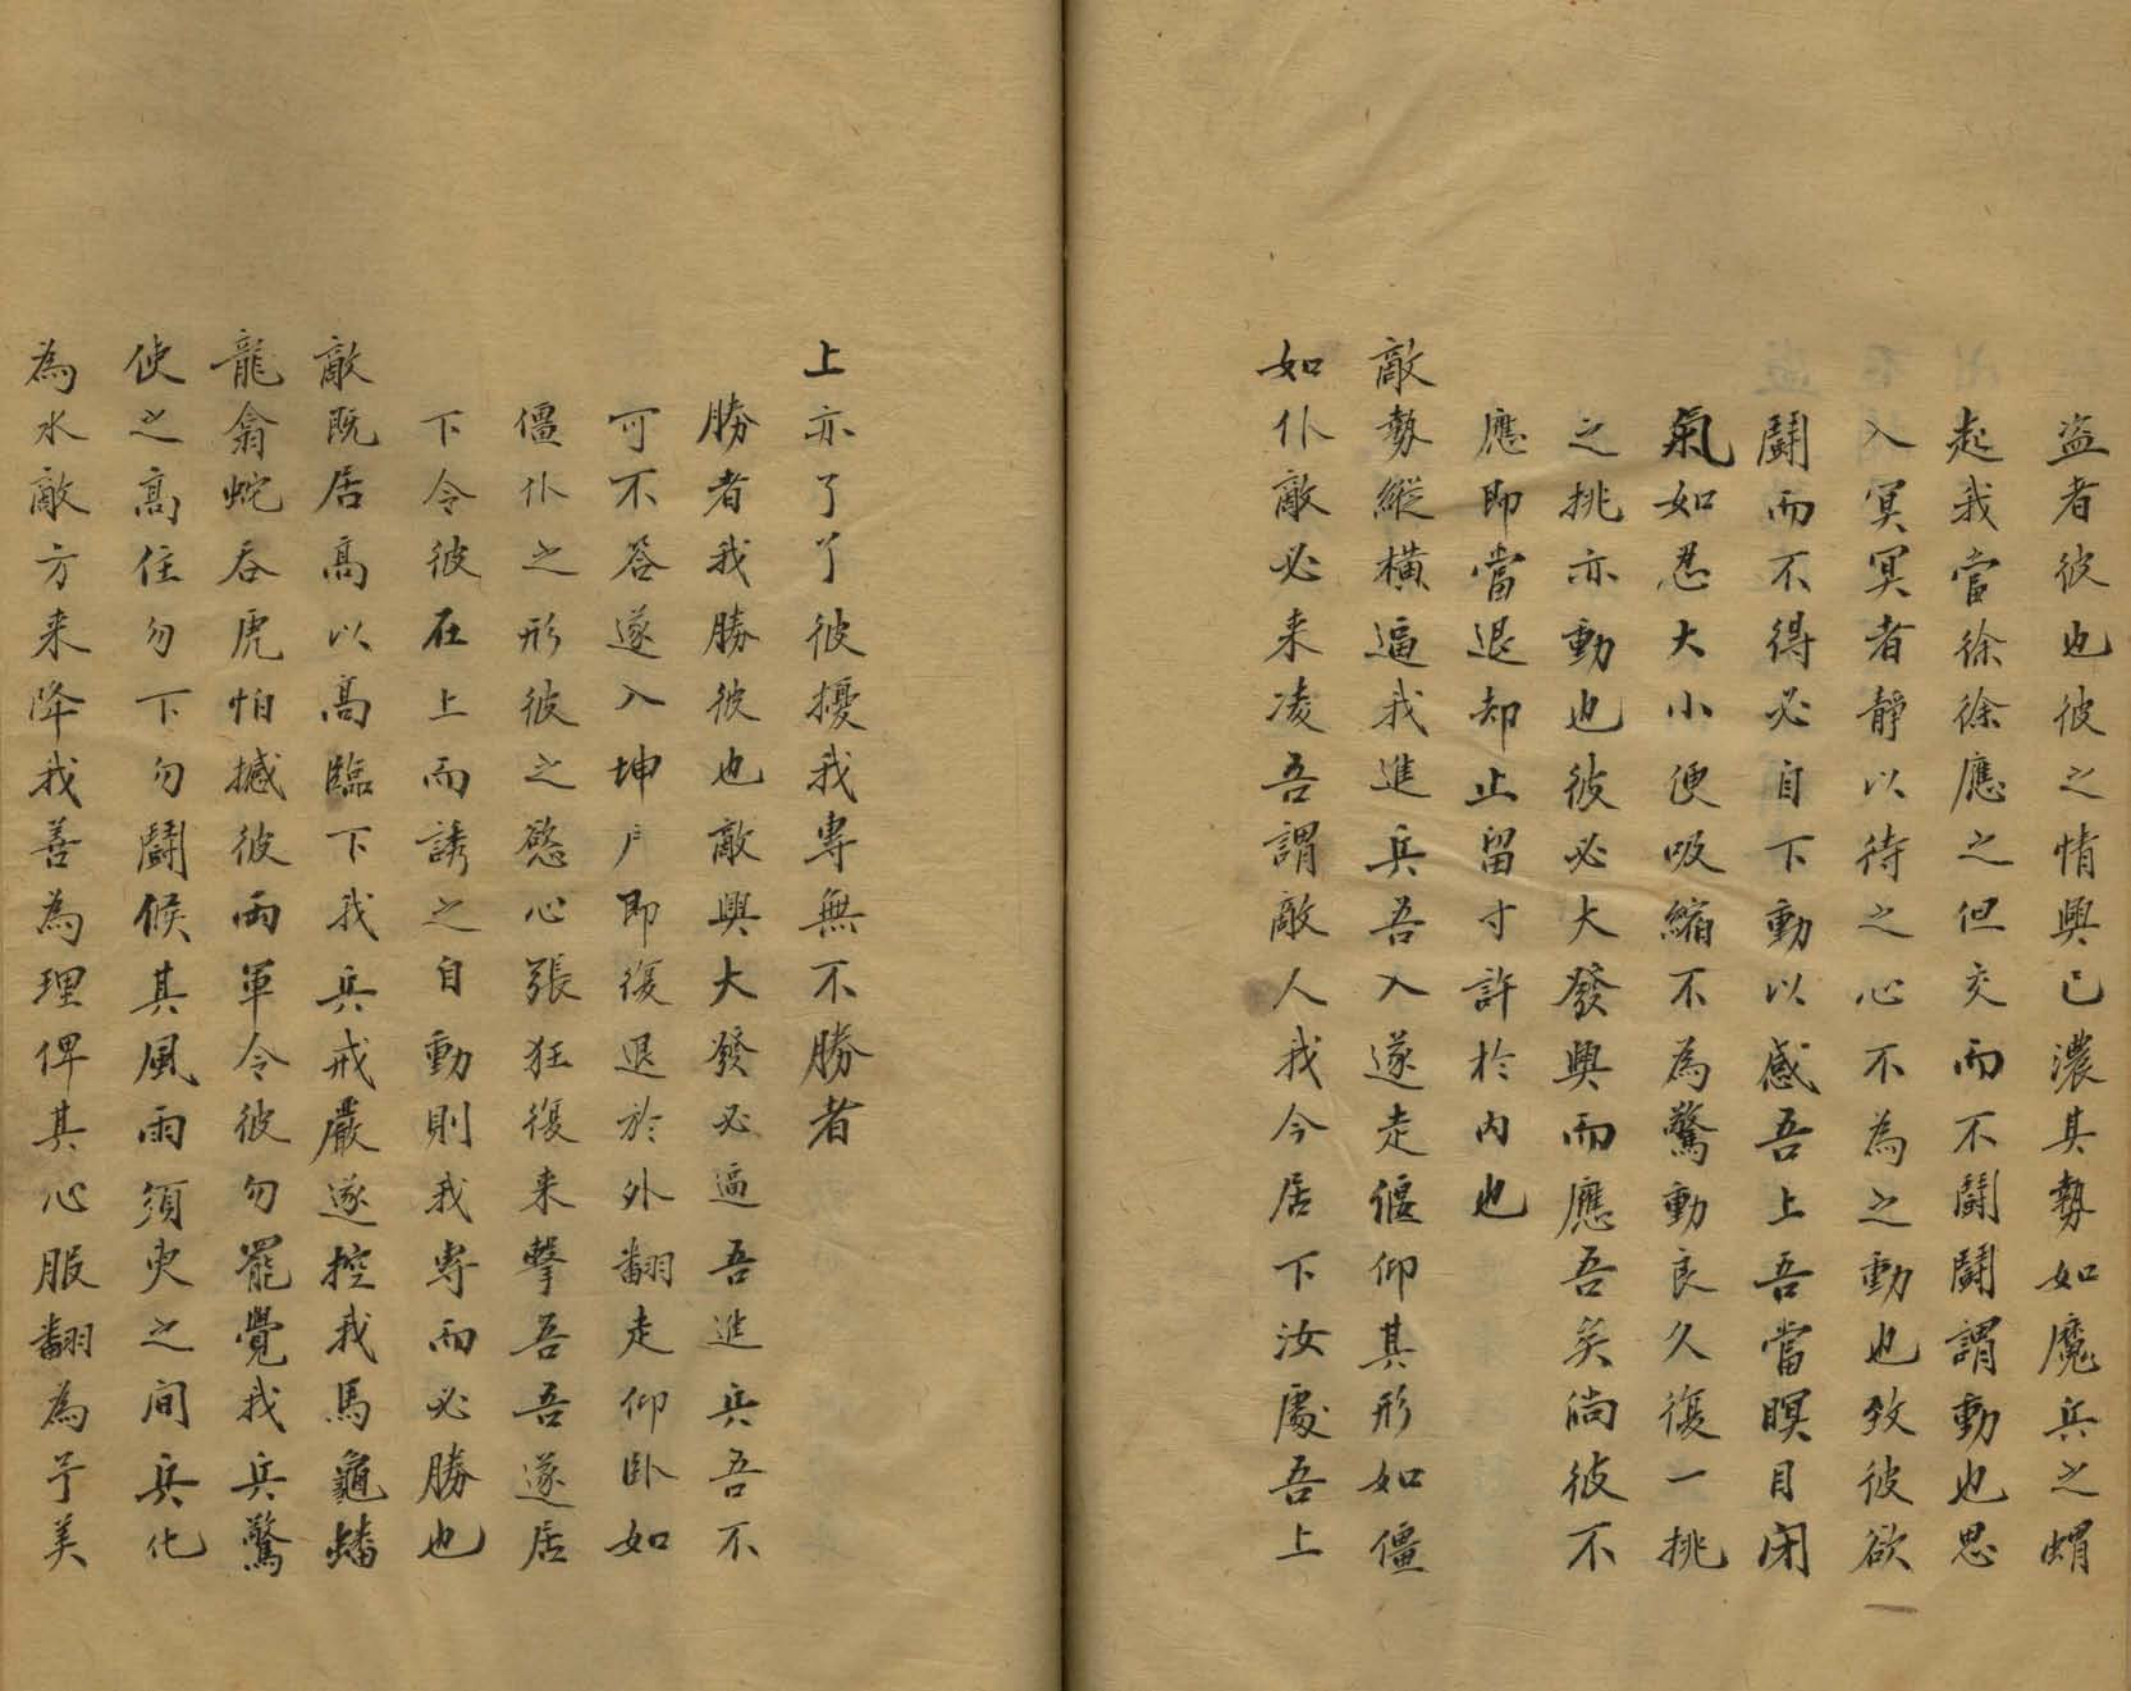 盗者彼也彼之情興已濃其勢如魔兵之蝟
起我當徐徐應之但交而不鬪鬪謂動也思
入冥冥者靜以待之心不為之動也致彼欲
鬪而不得必自下動以感吾上吾當瞑目閉
氣如忍大小便吸縮不為驚動良久復一挑
之挑亦動也彼必大發興而應吾矣倘彼不
應即當退却止留寸許於內也
敵勢縱橫逼我進兵吾入遂走偃仰其形如僵
如仆敵必来凌吾謂敵人我今居下汝處吾上
上亦了了彼擾我專無不勝者
勝者我勝彼也敵興大發必逼吾進兵吾不
可不答遂入坤戶即復退於外翻走仰卧如
僵仆之形彼之慾心張狂復来擊吾吾遂居
下令彼在上而誘之自動則我專而必勝也
敵既居高以高臨下我兵戒嚴遂控我馬龜蟠
龍翕蛇吞虎怕撼彼兩軍令彼勿罷覺我兵驚
使之高住勿下勿鬪候其風雨須臾之間兵化
為水敵方来降我善為理俾其心服翻為予美